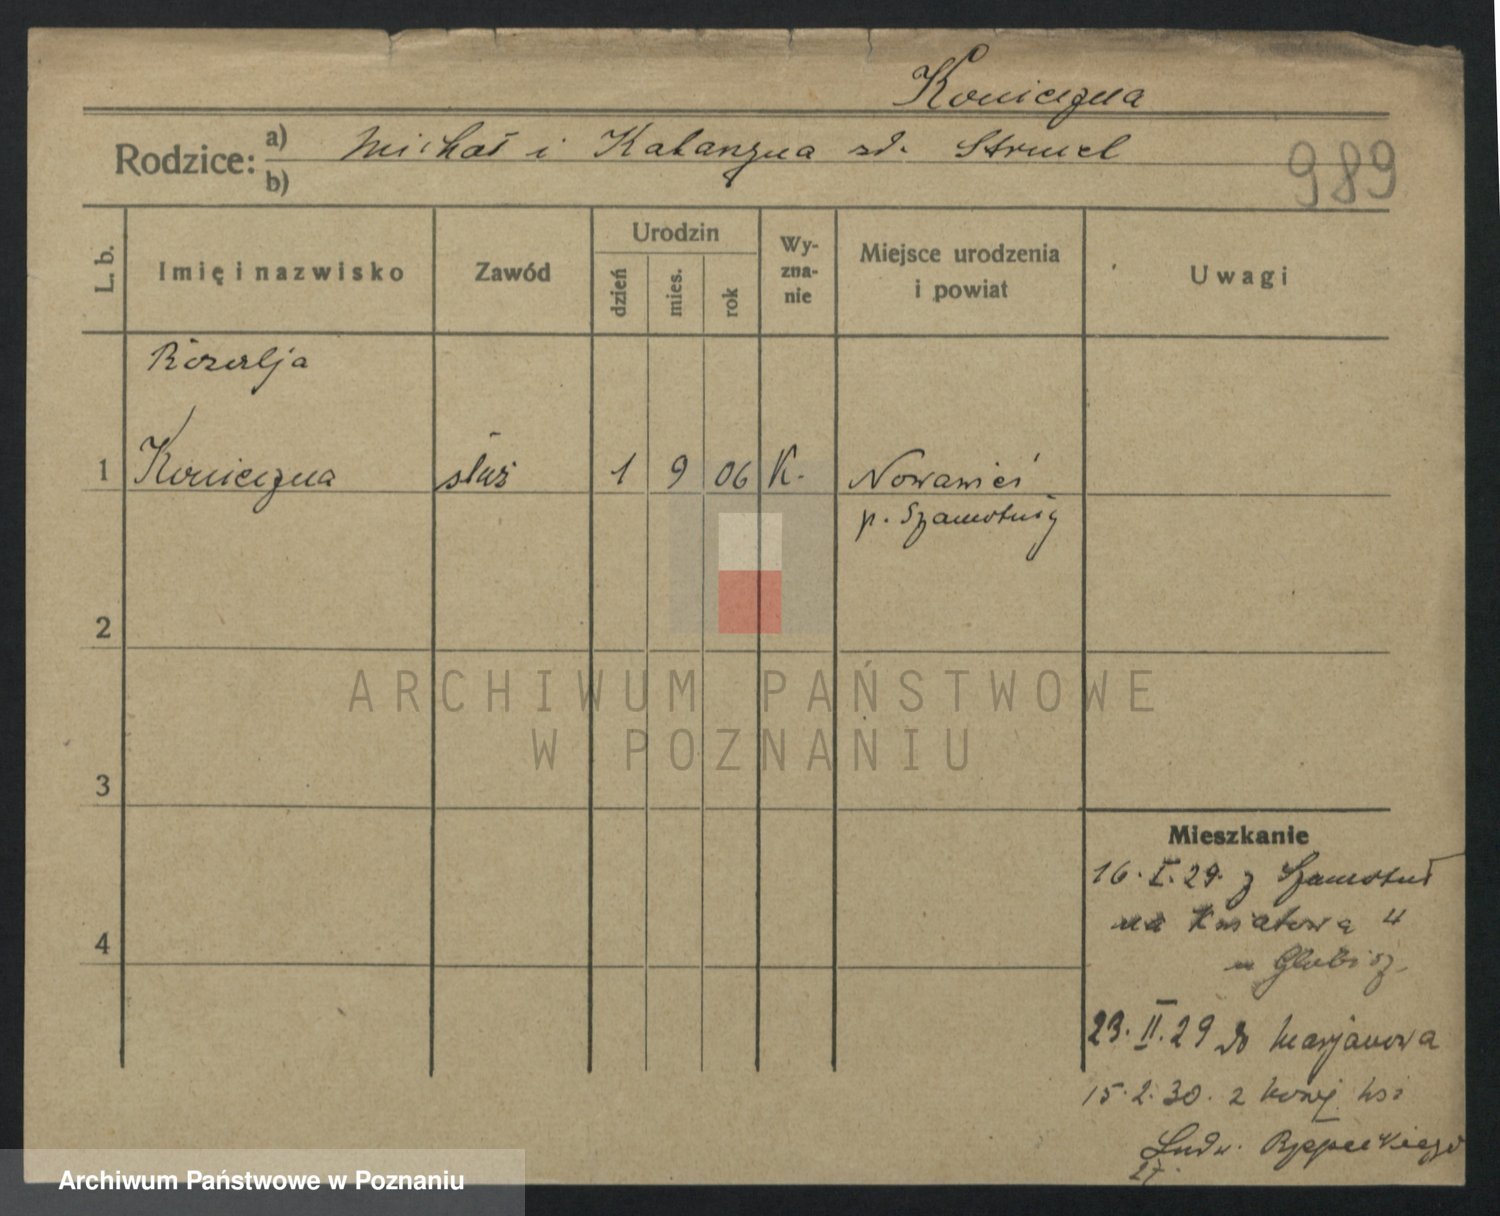 Konieczna
Rodzice: a) Michał i Katarzyna zd. Strucel
b)
989
L. b.
Imię i nazwisko
Zawód
Urodzin
dzień
mies.
rok
Wy-
zna-
nie
Miejsce urodzenia
i powiat
Uwagi
Rozalja
1 Konieczna służ 1 9 06 K. Nowawieś
p. Szamotuły
2
3
4
Mieszkanie
16. I. 29. z Szamotuł
na Kwiatową 4
u Glabisz
23. II. 29 do Marjanowa
15. 2. 30. z Nowej Wsi
Ludw. Rzepeckiego
27.
ARCHIWUM PAŃSTWOWE
W POZNANIU
Archiwum Państwowe w Poznaniu